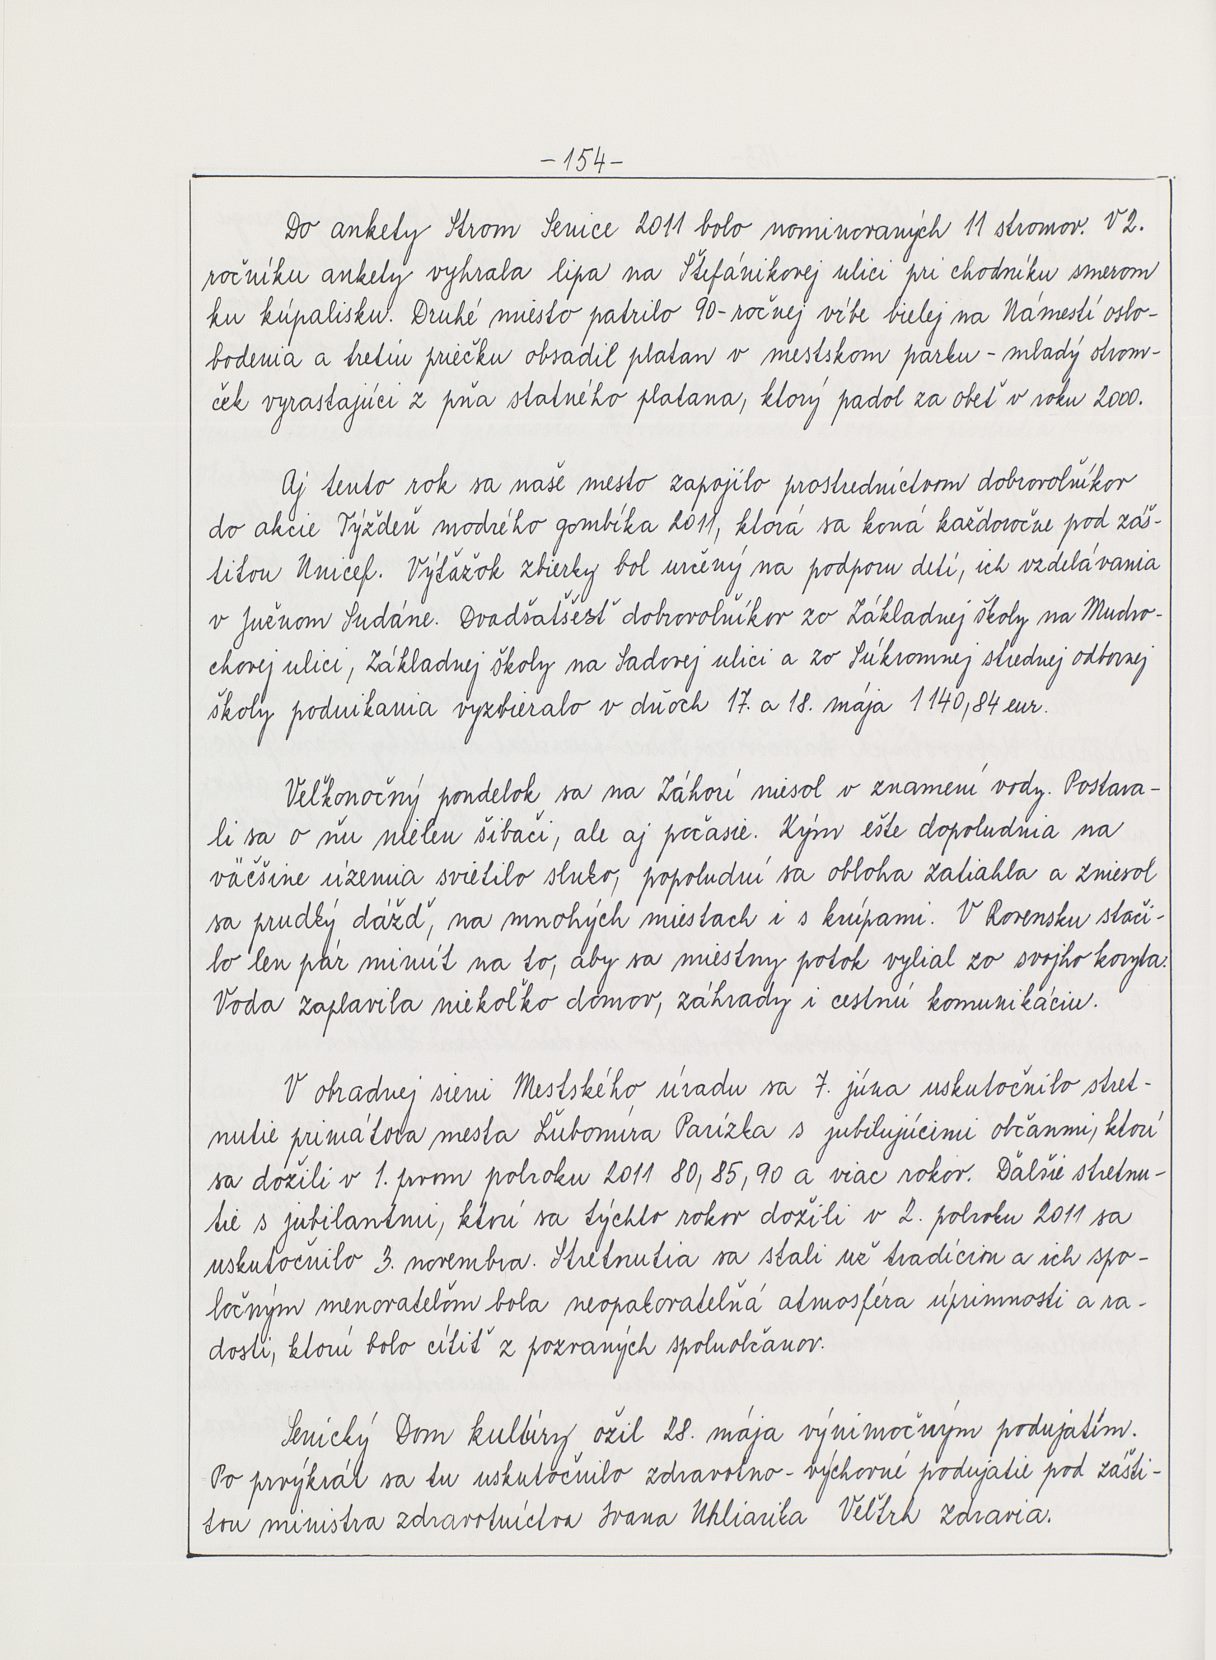 -154-
Do ankety Strom Senice 2011 bolo nominovaných 11 stromov. V 2.
ročníku ankety vyhrala lipa na Štefánikovej ulici pri chodníku smerom
ku kúpalisku. Druhé miesto patrilo 90-ročnej vŕbe bielej na Námestí oslo-
bodenia a tretiu priečku obsadil platan v mestskom parku - mladý strom-
ček vyrastajúci z pňa statného platana, ktorý padol za obeť v roku 2000.
Aj tento rok sa naše mesto zapojilo prostredníctvom dobrovoľníkov
do akcie Týždeň modrého gombíka 2011, ktorá sa koná každoročne pod záš-
titou Unicef. Výťažok zbierky bol určený na podporu detí, ich vzdelávania
v Južnom Sudáne. Dvadsaťšesť dobrovoľníkov zo Základnej školy na Mudro-
chovej ulici, Základnej školy na Sadovej ulici a zo Súkromnej strednej odbornej
školy podnikania vyzbieralo v dňoch 17. a 18. mája 1 140,84 eur.
Veľkonočný pondelok sa na Záhorí niesol v znamení vody. Postara-
li sa o ňu nielen šibači, ale aj počasie. Kým ešte dopoludnia na
väčšine územia svietilo slnko, popoludní sa obloha zatiahla a zniesol
sa prudký dážď, na mnohých miestach i s krúpami. V Rovensku stači-
lo len pár minút na to, aby sa miestny potok vylial zo svojho koryta.
Voda zaplavila niekoľko domov, záhrady i cestnú komunikáciu.
V obradnej sieni Mestského úradu sa 7. júna uskutočnilo stret-
nutie primátora mesta Ľubomíra Parízka s jubilujúcimi občanmi, ktorí
sa dožili v 1. prvom polroku 2011 80, 85, 90 a viac rokov. Ďalšie stretnu-
tie s jubilantmi, ktorí sa týchto rokov dožili v 2. polroku 2011 sa
uskutočnilo 3. novembra. Stretnutia sa stali už tradíciou a ich spo-
ločným menovateľom bola neopakovateľná atmosféra úprimnosti a ra-
dosti, ktorú bolo cítiť z pozvaných spoluobčanov.
Senický Dom kultúry ožil 28. mája výnimočným podujatím.
Po prvýkrát sa tu uskutočnilo zdravotno-výchovné podujatie pod zášti-
tou ministra zdravotníctva Ivana Uhliarika Veľtrh zdravia.